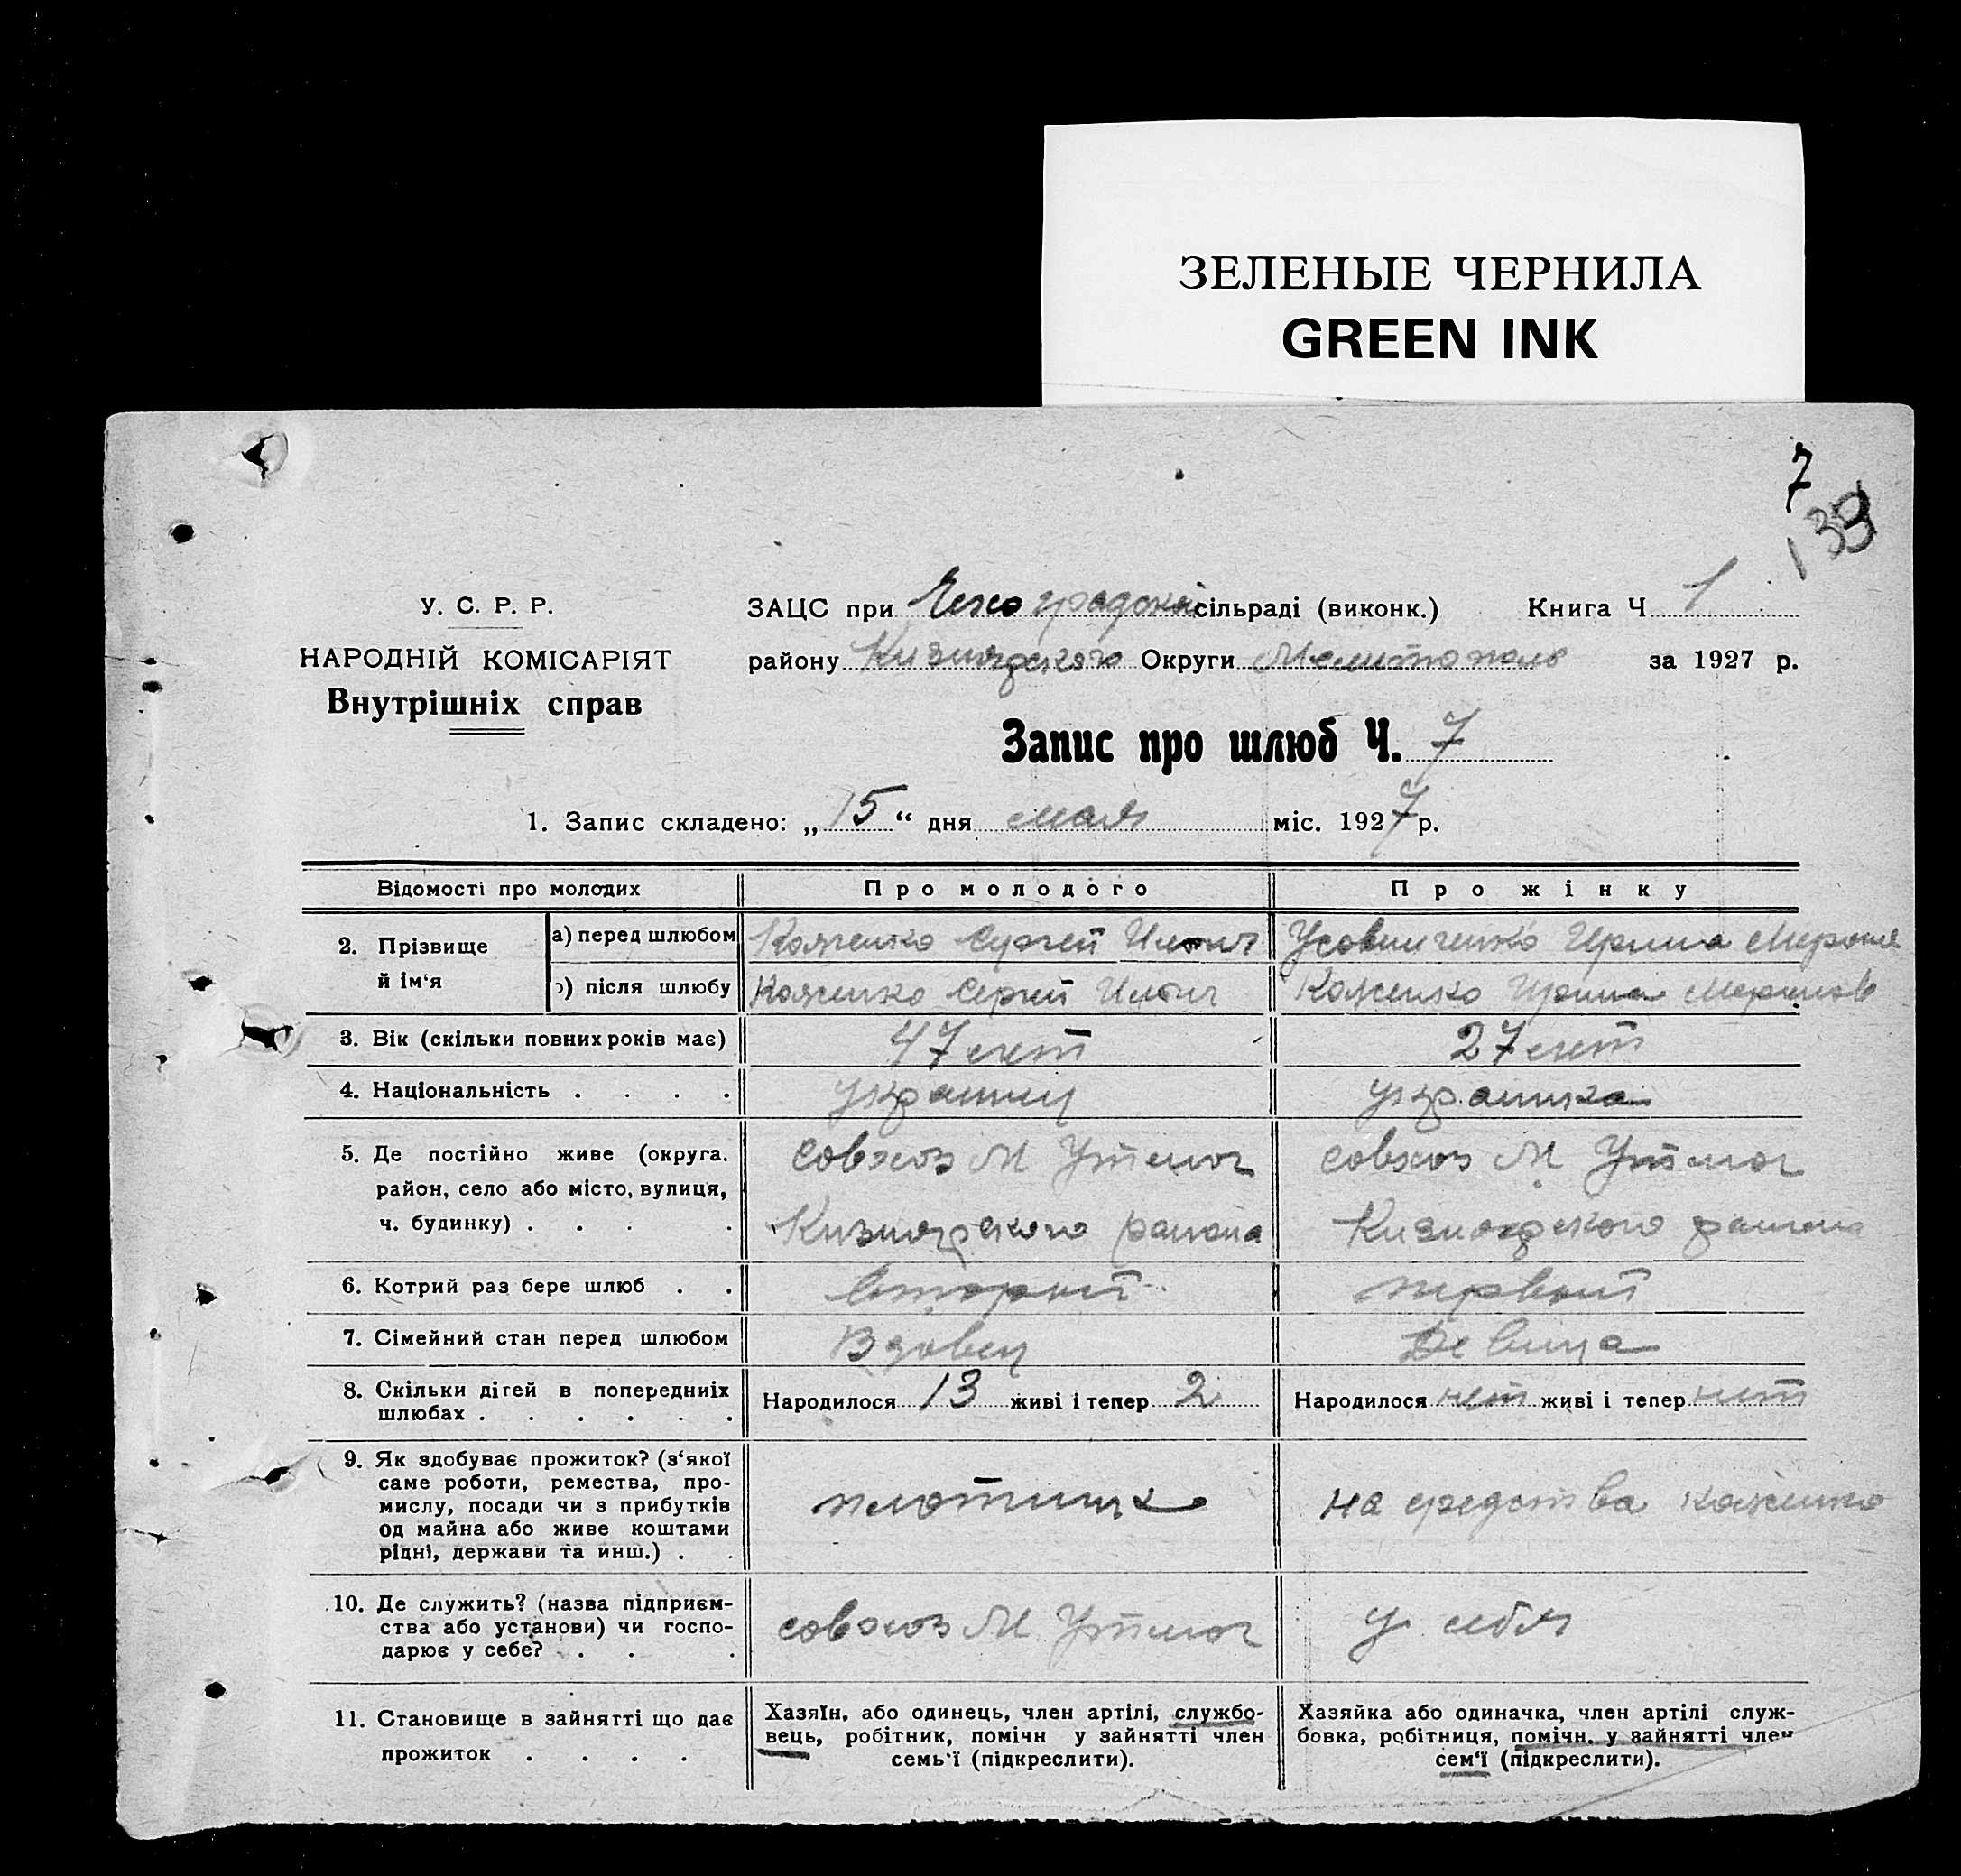 ЗЕЛЕНЫЕ ЧЕРНИЛА
GREEN INK
7
139
У. С. Р. Р.
НАРОДНІЙ КОМІСАРІЯТ
Внутрішніх справ
ЗАЦС при сільраді (виконк.) Книга Ч 1
району Кизиярского Округи Мелитополь за 1927 р.
Запис про шлюб Ч. 7
1. Запис складено: „15“ дня мая міс. 1927 р.
Відомості про молодих
Про молодого
Про жінку
2. Прізвище й ім‘я
а) перед шлюбом
Коженко Сергей Ильич
Усовниченко Ирина
б) після шлюбу
Коженко Сергей Ильич
Коженко Ирина
3. Вік (скільки повних років має)
47 лет
27 лет
4. Національність . . . .
украинец
украинка
5. Де постійно живе (округа.
район, село або місто, вулиця,
ч. будинку) . . . .
совхоз М Утлюг
Кизиярского района
совхоз М Утлюг
Кизиярского района
6. Котрий раз бере шлюб . .
вторый
первый
7. Сімейний стан перед шлюбом
Вдовец
Девица
8. Скільки дітей в попередниіх
шлюбах . . . . . .
Народилося 13 живі і тепер 2
Народилося нет живі і тепер нет
9. Як здобуває прожиток? (з‘якої
саме роботи, ремества, про-
мислу, посади чи з прибутків
од майна або живе коштами
рідні, держави та инш.) . .
плотник
на средства Коженко
10. Де служить? (назва підприєм-
ства або установи) чи госпо-
дарює у себе? . . .
совхоз М Утлюг
у себя
11. Становище в зайнятті що дає
прожиток . . . .
Хазяїн, або одинець, член артілі, службо-
вець, робітник, помічн у зайнятті член
семь‘ї (підкреслити).
Хазяйка або одиначка, член артілі служ-
бовка, робітниця, помічн. у зайнятті член
сем‘ї (підкреслити).